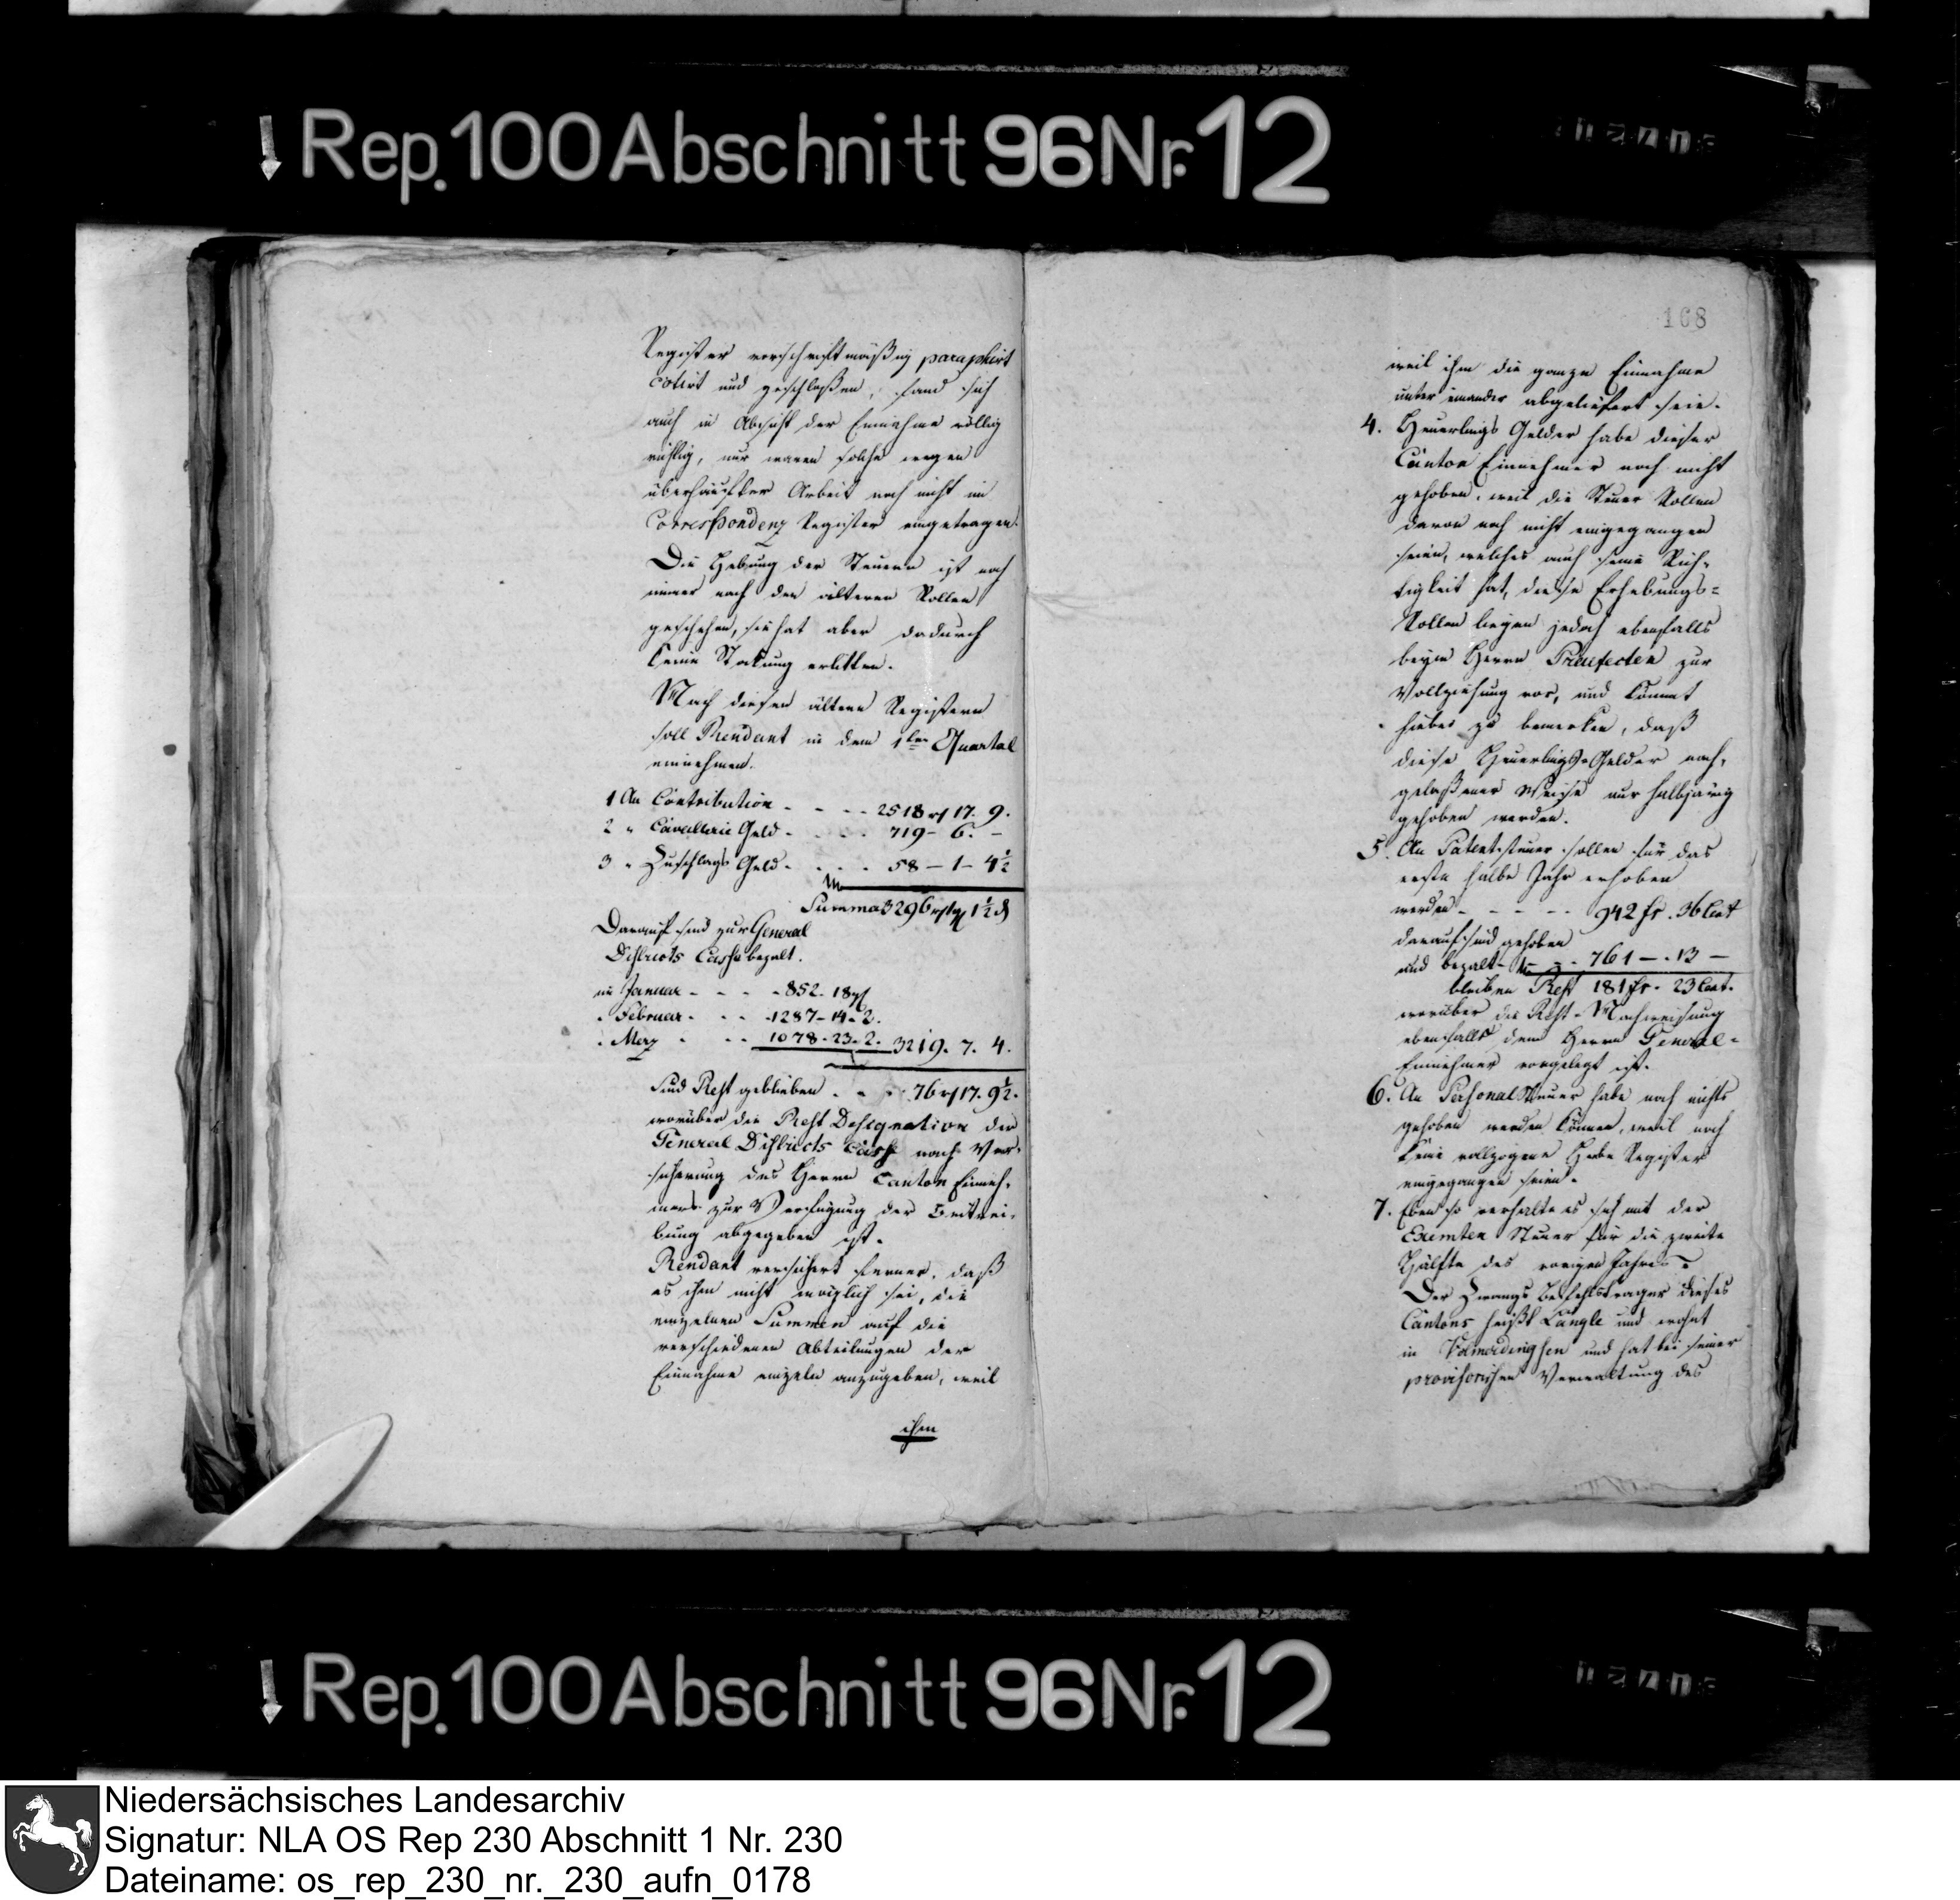 Rep. 100 Abschnitt 96 Nr. 12
Register vorschriftmäßig paraphirt
cotirt und geschloßen, fand sich
auch in Absicht der Einnahme völlig
richtig, nur waren solche wegen
überhäufter Arbeit noch nicht im
Correspondenz Register eingetragen.
Die Hebung der Steuern ist noch
immer nach den älteren Rollen
geschehen, sie hat aber dadurch
keine Stokung erlitten.
Nach diesen ältern Registern
soll Rendant in dem 1ten Quartal
einnehmen.
1 An Contribution - - - - 2518 rt 17. 9.
2 " Cavallerie Geld - - - - 719 - 6. -
3 " Zuschlags Geld - - - - 58 - 1 - 4½
Summa 3296 rt 1 gr 1½ d
Darauf sind zur General
Districts Casse bezalt.
im Januar - - - - 852. 18 gr
" Februar - - - 1287 - 14 - 2.
" Merz - - - 1078 - 23 - 2. 3219. 7. 4.
Sind Rest geblieben - - - 76 rt 17. 9½.
worüber die Rest Designation der
General Districts Casse nach Ver-
sicherung des Herrn Canton Einneh-
mers zur Verfügung der Beitrei-
bung abgegeben ist.
Rendant versichert ferner, daß
es ihm nicht möglich sei, die
einzelnen Summen auf die
verschiedenen Abteilungen der
Einnahme einzeln anzugeben, weil
ihm
168
weil ihm die ganze Einnahme
unter einander abgeliefert seie.
4. Heuerlings Gelder habe dieser
Canton Einnehmer noch nicht
gehoben, weil die Steuer Rollen
davon noch nicht eingegangen
seien, welches auch seine Rich-
tigkeit hat, diese Erhebungs=
Rollen liegen jedoch ebenfalls
beym Herrn Praefecten zur
Vollziehung vor, und kömmt
hiebei zu bemerken, daß
diese Heuerlings-Gelder nach-
gelaßener Weise nur halbjärig
gehoben werden.
5. An Patentsteuer sollen für das
erste halbe Jahr erhoben
werden - - - - - 942 fr. 36 Cent
darauf sind gehoben
und bezalt - - - 761 - . 13 -
bleiben Rest 181 fr. 23 Cent.
worüber die Rest-Nachweisung
ebenfalls dem Herrn General-
Einnehmer vorgelegt ist.
6. An Personal Steuer habe noch nichts
gehoben werden können, weil noch
keine vollzogene Hebe Register
eingegangen seien.
7. Eben so verhalte es sich mit der
Exemten Steuer für die zweite
Hälfte des vorigen Jahres.
Der Zwangs Befehlsträger dieses
Cantons heißt Längle und wohnt
in Volmerdingsen und hat bei seiner
provisorischen Verwaltung des
Rep. 100 Abschnitt 96 Nr. 12
Niedersächsisches Landesarchiv
Signatur: NLA OS Rep 230 Abschnitt 1 Nr. 230
Dateiname: os_rep_230_nr._230_aufn_0178